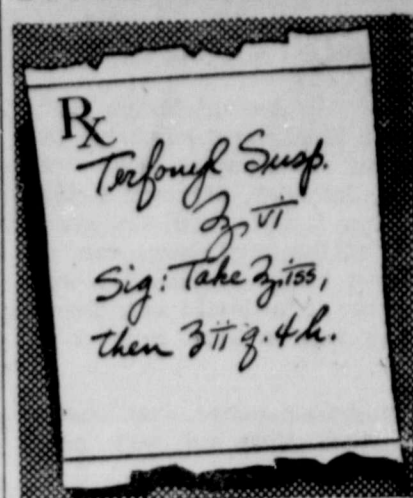 ℞
Terfonyl Susp.
℥ VI
Sig: Take ℥ iss,
then ʒ ii q. 4 h.